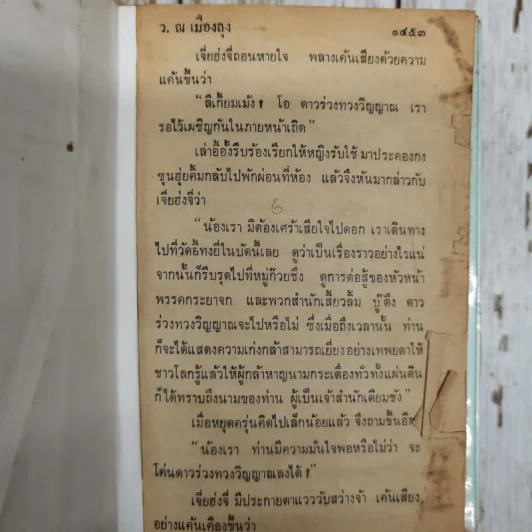 ว. ณ เมืองลุง
๑๔๕๓
เจี่ยฮ่งจี่ถอนหายใจ พลางเค้นเสียงด้วยความ
แค้นขึ้นว่า
“ลิเกี้ยมเม้ง! โอ ดาวร่วงทวงวิญญาณ เรา
รอไว้เผชิญกันในภายหน้าเถิด”
เล่าอี้อั้งรีบร้องเรียกให้หญิงรับใช้มาประคองกง
ซุนฮุ่ยคิ้มกลับไปพักผ่อนที่ห้อง แล้วจึงหันมากล่าวกับ
เจี่ยฮ่งจี่ว่า
6
“น้องเรา มิต้องเศร้าเสียใจไปดอก เราเดินทาง
ไปที่วัดอี้ทงยี่ในบัดนี้เลย ดูว่าเป็นเรื่องราวอย่างไรแน่
จากนั้นก็รีบรุดไปที่หมู่ก๊วยซึ้ง ดูการต่อสู้ของหัวหน้า
พรรคกระยาจก และพวกสำนักเสี้ยวลิ้ม บู๊ตึ๊ง ดาว
ร่วงทวงวิญญาณจะไปหรือไม่ ซึ่งเมื่อถึงเวลานั้น ท่าน
ก็จะได้แสดงความเก่งกล้าสามารถเยี่ยงอย่างเทพยดาให้
ชาวโลกรู้แล้วให้ผู้กล้าหาญนามกระเดื่องทั่วทั้งแผ่นดิน
ก็ได้ทราบถึงนามของท่าน ผู้เป็นเจ้าสำนักเตียมชัง”
เมื่อหยุดครุ่นคิดไปเล็กน้อยแล้ว จึงถามขึ้นอีก
“น้องเรา ท่านมีความมั่นใจพอหรือไม่ว่า จะ
โค่นดาวร่วงทวงวิญญาณลงได้!”
เจี่ยฮ่งจี่ มีประกายตาแวววับสว่างจ้า เค้นเสียง
อย่างแค้นเคืองขึ้นว่า